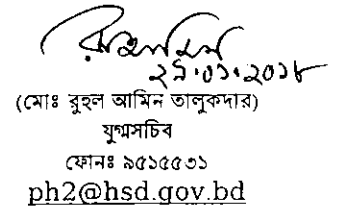 ২৯.০১.২০১৮
(মোঃ রুহুল আমিন তালুকদার)
যুগ্মসচিব
ফোনঃ ৯৫১৫৫৩১
ph2@hsd.gov.bd